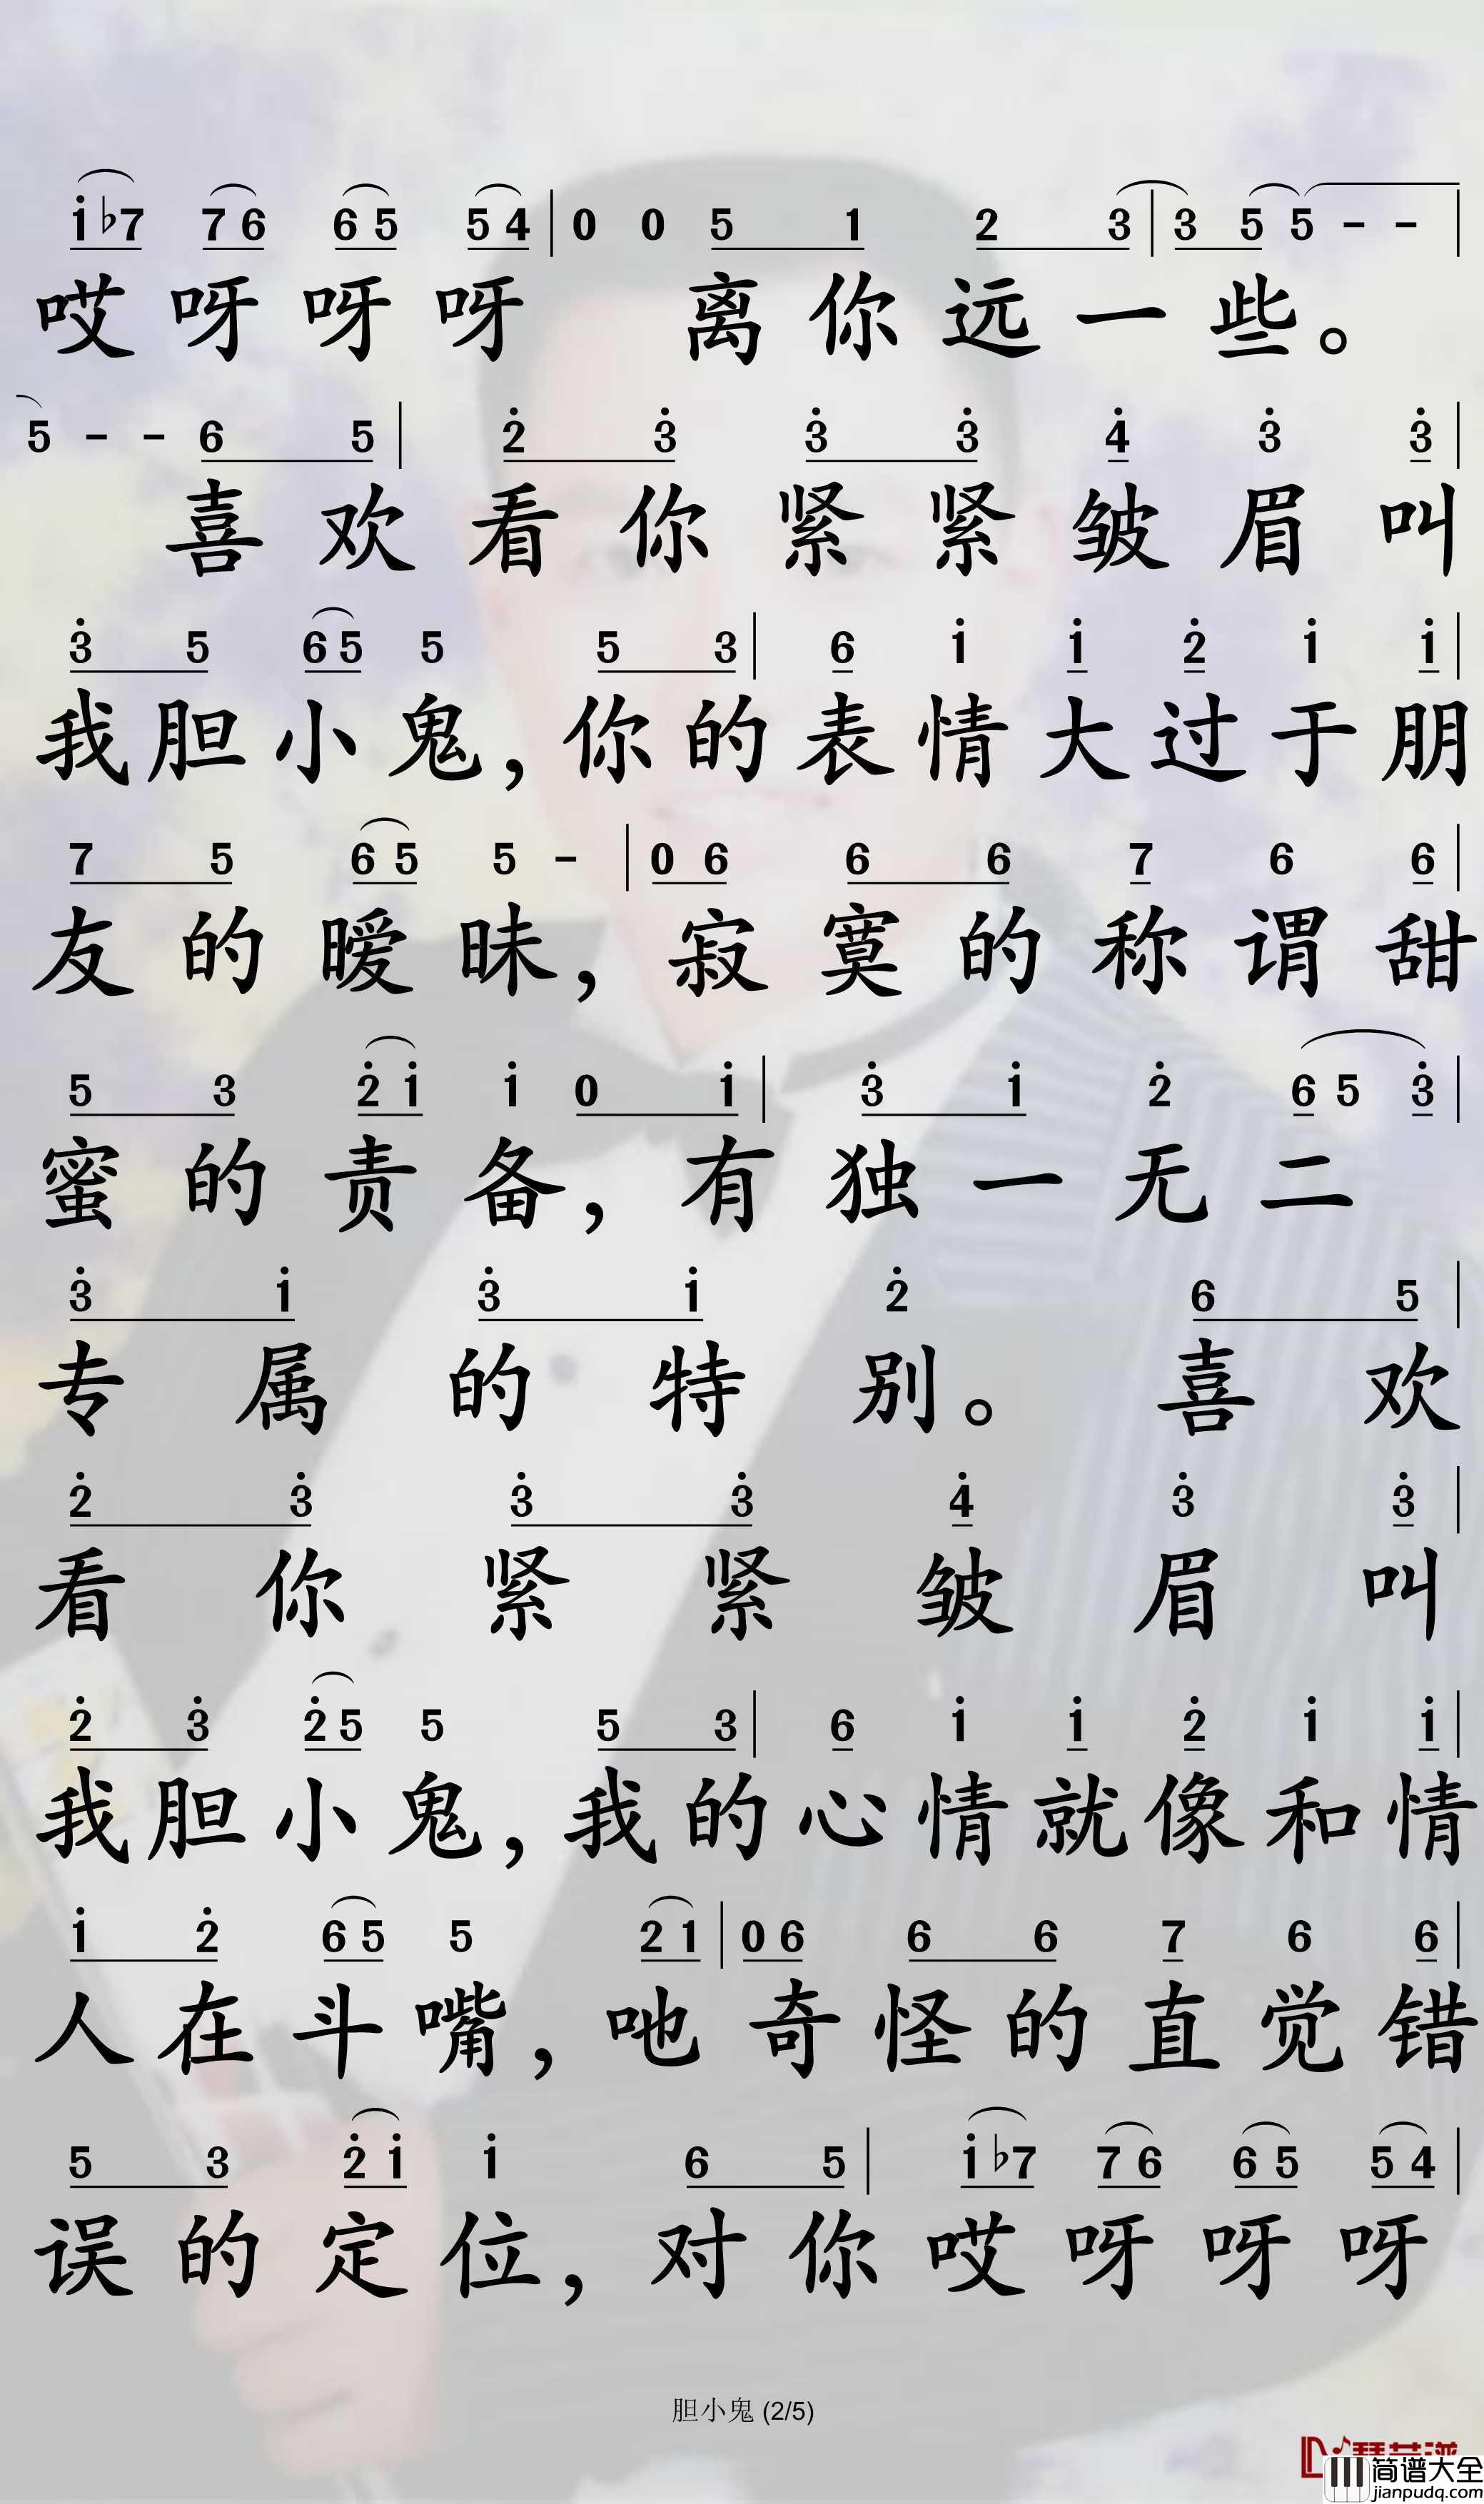 i ♭7 7 6 6 5 5 4 | 0 0 5 1 2 3 | 3 5 5 - - |
哎呀呀呀 离你远一些。
5 - - 6 5 | 2̇ 3̇ 3̇ 3̇ 4̇ 3̇ 3̇ |
喜欢看你紧紧皱眉叫
3̇ 5 6 5 5 5 3 | 6 i i 2̇ i i |
我胆小鬼,你的表情大过于朋
7 5 6 5 5 - | 0 6 6 6 7 6 6 |
友的暧昧,寂寞的称谓甜
5 3 2̇ i i 0 i | 3̇ i 2̇ 6 5 3̇ |
蜜的责备,有独一无二
3̇ i 3̇ i 2̇ 6 5 |
专属的特别。喜欢
2̇ 3̇ 3̇ 3̇ 4̇ 3̇ 3̇ |
看你紧紧皱眉叫
2̇ 3̇ 2̇ 5 5 5 3 | 6 i i 2̇ i i |
我胆小鬼,我的心情就像和情
i 2̇ 6 5 5 2 1 | 0 6 6 6 7 6 6 |
人在斗嘴,吔奇怪的直觉错
5 3 2̇ i i 6 5 | i ♭7 7 6 6 5 5 4 |
误的定位,对你哎呀呀呀
胆小鬼 (2/5)
简谱大全
jianpudq.com